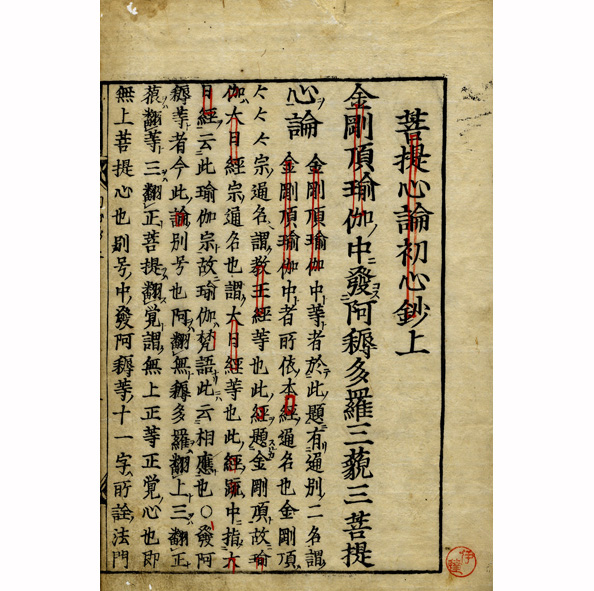 菩提心論初心鈔上
金剛頂瑜伽中發阿耨多羅三藐三菩提
心論
金剛頂瑜伽中等者於此題有通別二名謂
金剛頂瑜伽中者所依本經通名也金剛頂
宗通名謂教王經等也此經題金剛頂故瑜
伽大日經宗通名也謂大日經等也此經疏中指大
日經云此瑜伽宗故瑜伽梵語此云相應也○發阿
耨等者今此論別号也阿翻無耨多羅翻上三翻正
藐翻等三翻正菩提翻覚謂無上正等正覚心也即
無上菩提心也別号中發阿耨等十一字所詮法門